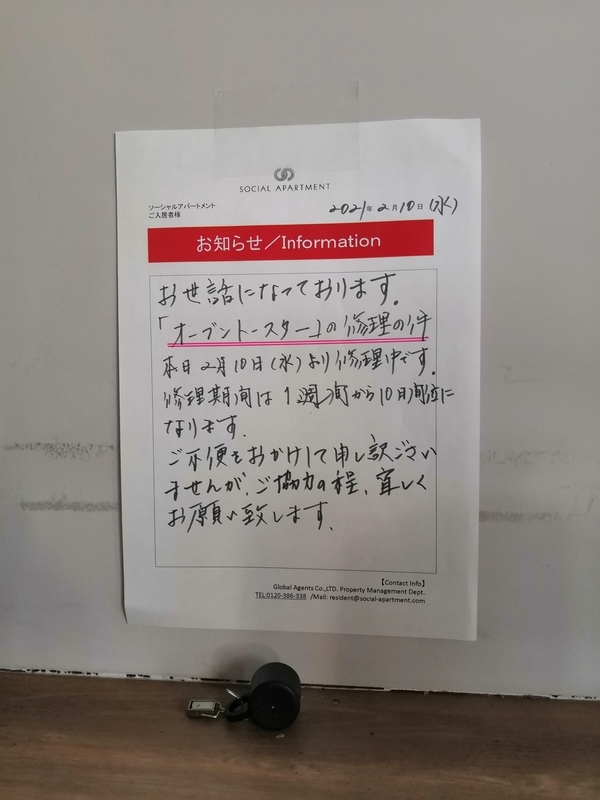 SOCIAL APARTMENT
ソーシャルアパートメント
ご入居者様
2021年2月10日(水)
お知らせ/Information
お世話になっております。
「オーブントースター」の修理の件
本日2月10日(水)より修理中です。
修理期間は1週間から10日間位に
なります。
ご不便をおかけして申し訳ござい
ませんが、ご協力の程、宜しく
お願い致します。
【Contact Info】
Global Agents Co.,LTD. Property Management Dept.
TEL:0120-386-338 /Mail: resident@social-apartment.com